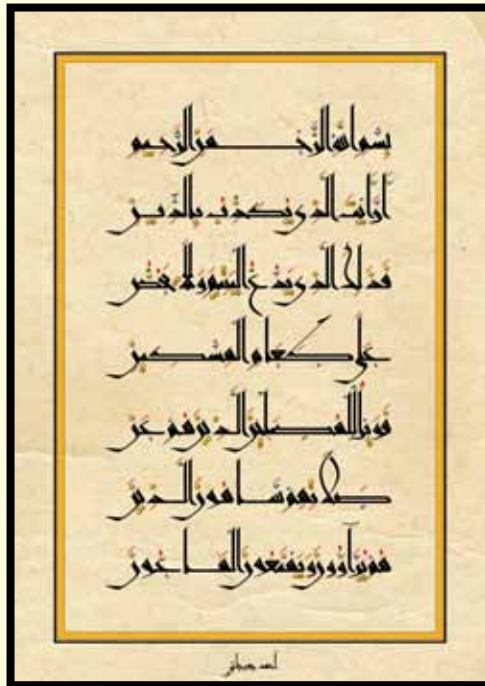 بسم الله الرحمن الرحيم
أرأيت الذي يكذب بالدين
فذلك الذي يدع اليتيم ولا يحض
على طعام المسكين
فويل للمصلين الذين هم عن
صلاتهم ساهون الذين
هم يرآؤون ويمنعون الماعون
احمد